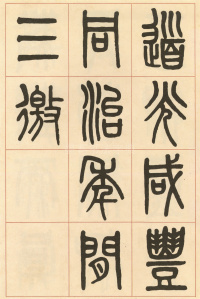 道光咸豐
同治年間
三徵